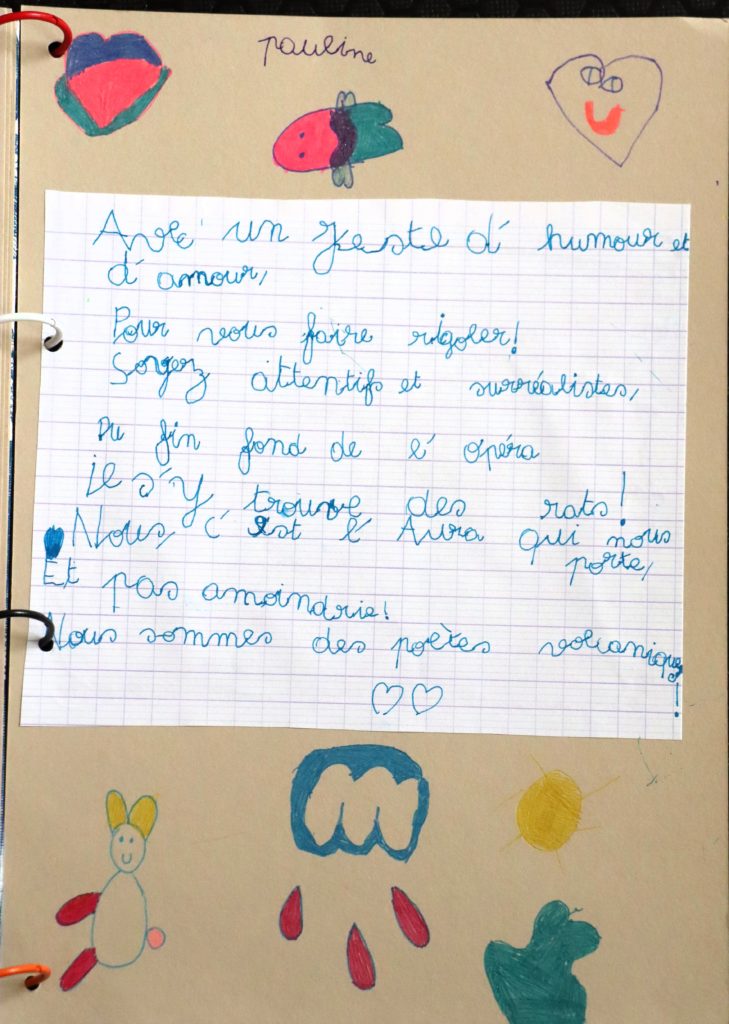 pauline
Avec un geste d' humour et
d' amour,
Pour vous faire rigoler!
Soyez attentifs et surréalistes,
Du fin fond de l' opéra
je s'y trouve des rats!
Nous, c' est l' Aura qui nous
porte,
Et pas amoindrie!
Nous sommes des poètes volcaniques
!